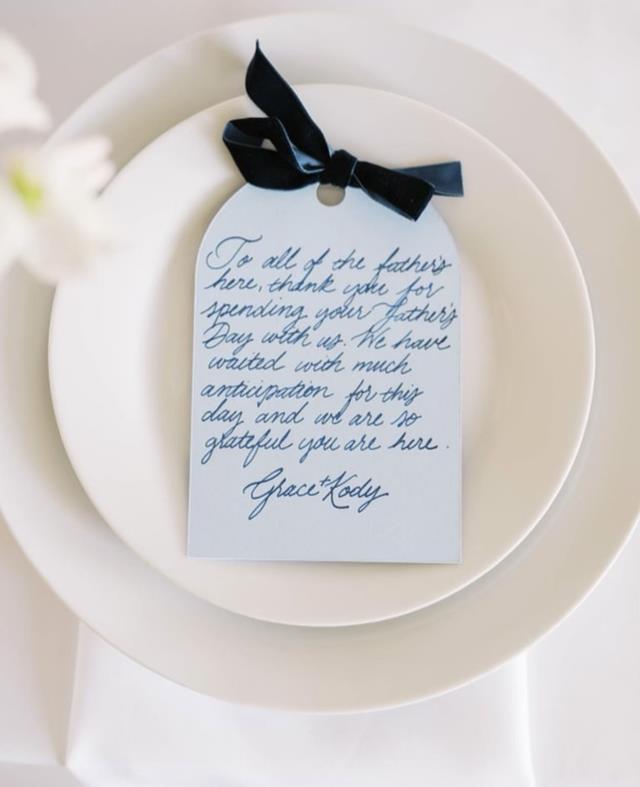 To all of the father's
here, thank you for
spending your Father's
Day with us. We have
waited with much
anticipation for this
day and we are so
grateful you are here.
Grace + Kody